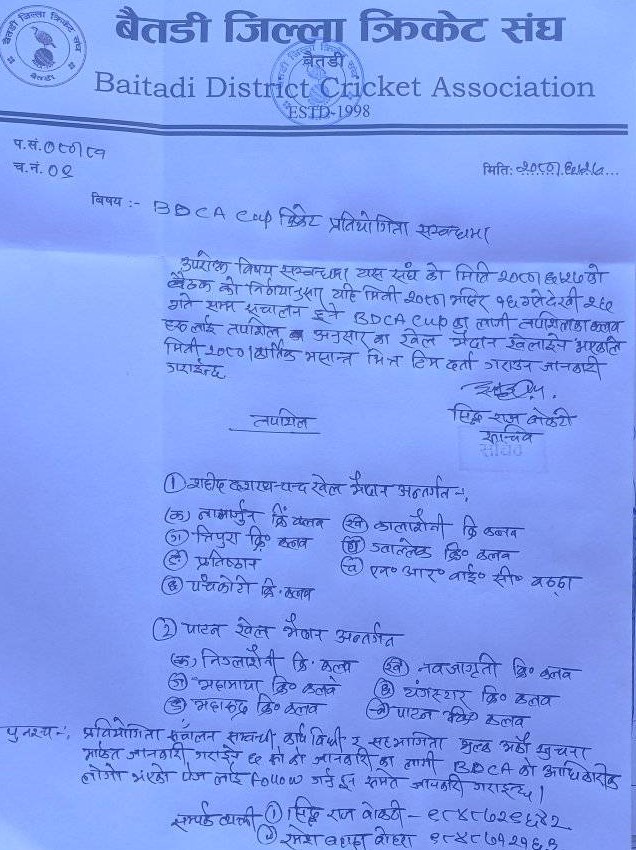 बैतडी जिल्ला क्रिकेट संघ
Baitadi District Cricket Association
ESTD-1998
प.सं. ०८०/८१
च.नं. ०१
मिति: २०८०/६/२७
बिषय :- BDCA Cup क्रिकेट प्रतियोगिता सम्बन्धमा
उपरोक्त विषय सम्बन्धमा यस संघ को मिति २०८०/६/२७ को
बैठक को निर्णयानुसार यहि मिती २०८० मंसिर १६ गतेदेखी २६
गते सम्म संचालन हुने BDCA Cup का लागी तपशिलका क्लब
हरुलाई तपशिल अनुसार का खेल मैदान खेलाईने भएकाले
मिती २०८० कार्तिक मसान्त भित्र टिम दर्ता गराउन जानकारी
गराईन्छ
तपशिल
सिद्ध राज
सचिव
① शहीद दशरथ चन्द खेल मैदान अन्तर्गत :-
(क) नागार्जुन क्रि क्लब (ख) कालाशैनी क्रि क्लब
(ग) त्रिपुरा क्रि॰ क्लब (घ) ग्वाल्लेक क्रि॰ क्लब
(ङ) प्रतिष्ठान (च) एन॰ आर॰ वाई॰ सी॰
(छ) पंचकोटी क्रि. क्लब
② पाटन खेल मैदान अन्तर्गत
(क) निगलाशैनी क्रि. क्लब (ख) नवजागृती क्रि॰ क्लब
(ग) महामाया क्रि॰ क्लब (घ) यंगस्टार क्रि॰ क्लब
(ङ) महारुद्र क्रि॰ क्लब (च) पाटन क्लब
पुनश्च :- प्रतियोगिता संचालन सम्बन्धी कार्यविधी र सहभागिता शुल्क अर्को सुचना
मार्फत जानकारी गराईने छ जानकारी का लागी BDCA को आधिकारीक
लोगो भएको पेज लाई Follow गर्नु हुन समेत जानकारी गराइन्छ।
सम्पर्क व्यक्ती ① सिद्ध राज - ९८४८७२९६४२
② रमेश बहादुर बोहरा